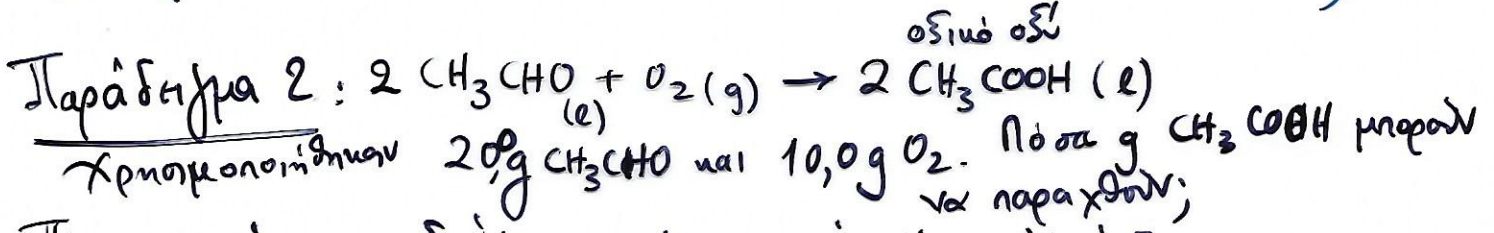 οξικό οξύ
Παράδειγμα 2: 2 CH₃CHO (l) + O₂(g) → 2 CH₃COOH (l)
Χρησιμοποιήθηκαν 20,0g CH₃CHO και 10,0g O₂. Πόσα g CH₃COOH μπορούν
να παραχθούν;